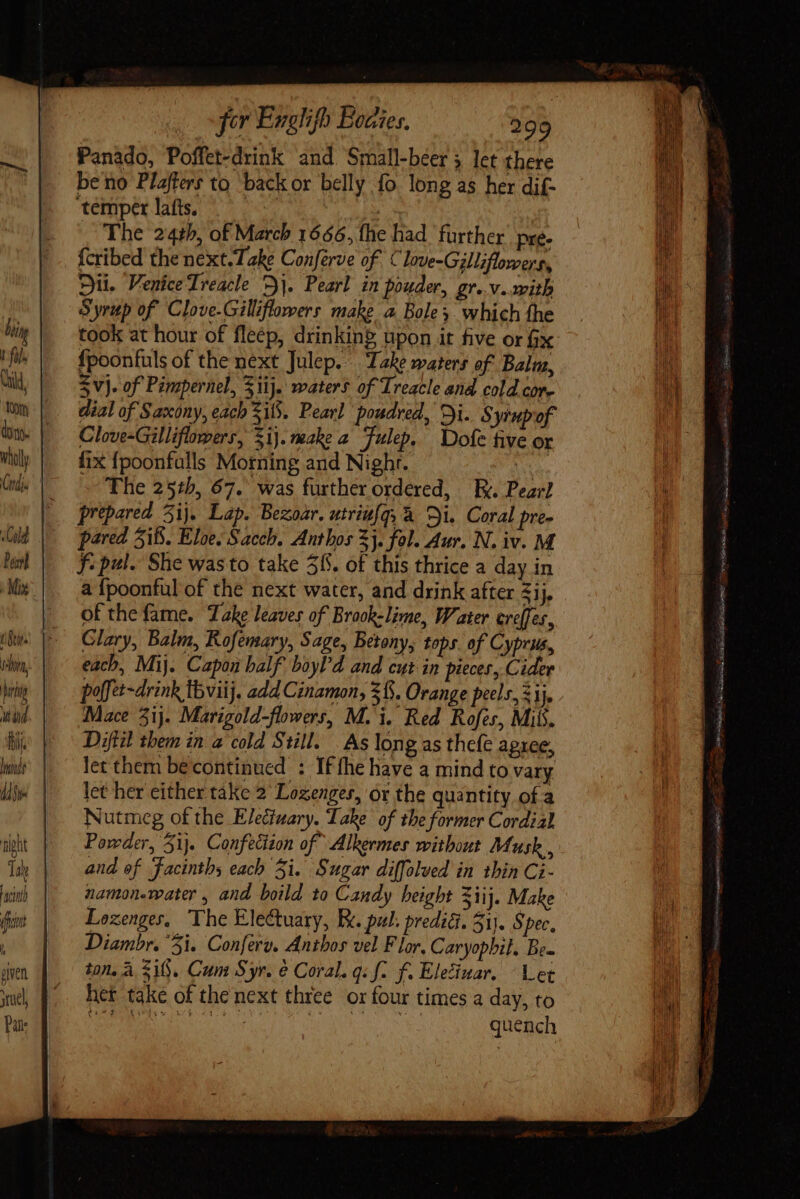 for Engliſh Bodies. 299
Panado, Poſſet-drink and Small-beer; let there
be no Plaſters to back or belly ſo long as her diſ-
temper laſts.
The 24th, of March 1666, ſhe had further pre-
ſcribed the next. Take Conſerve of Clove-Gilliflowers,
℈ii. Venice Treacle ℈j. Pearl in pouder, gr. v. with
Syrup of Clove-Gilliflowers make a Bole; which ſhe
took at hour of ſleep, drinking upon it five or ſix
ſpoonfuls of the next Julep. Take waters of Balm,
℥vj. of Pimpernel, ℥iij. waters of Treacle and cold cor-
dial of Saxony, each ℥iß. Pearl poudred, ℈i. Syrup of
Clove-Gilliflowers, ℥ij. make a Julep. Doſe five or
ſix ſpoonfulls Morning and Night.
The 25th, 67. was further ordered, ℞. Pearl
prepared ʒij. Lap. Bezoar. utriuſq; à ℈i. Coral pre-
pared ʒiß. Eloe. Sacch. Anthos ℥j. fol. Aur. N. iv. M
f. pul. She was to take ʒß. of this thrice a day in
a ſpoonful of the next water, and drink after ℥ij.
of the ſame. Take leaves of Brook-lime, Water creſſes,
Clary, Balm, Roſemary, Sage, Betony, tops of Cyprus,
each, Mij. Capon half boyl'd and cut in pieces, Cider
poſſet-drink ℔viij. add Cinamon, ℥ß. Orange peels, ℥ij.
Mace ʒij. Marigold-flowers, M. i. Red Roſes, Miß.
Diſtil them in a cold Still. As long as theſe agree,
let them be continued : If ſhe have a mind to vary
let her either take 2 Lozenges, or the quantity of a
Nutmeg of the Electuary. Take of the former Cordial
Powder, ʒij. Confection of Alkermes without Musk,
and of Jacinths each ʒi. Sugar diſſolved in thin Ci-
namon-water, and boild to Candy height ℥iij. Make
Lozenges. The Electuary, ℞. pul. predict. ʒij. Spec.
Diambr. ʒi. Conſerv. Anthos vel Flor. Caryophil. Be-
ton. à ℥iß. Cum Syr. è Coral. q. ſ. f. Electuar. Let
her take of the next three or four times a day, to
quench